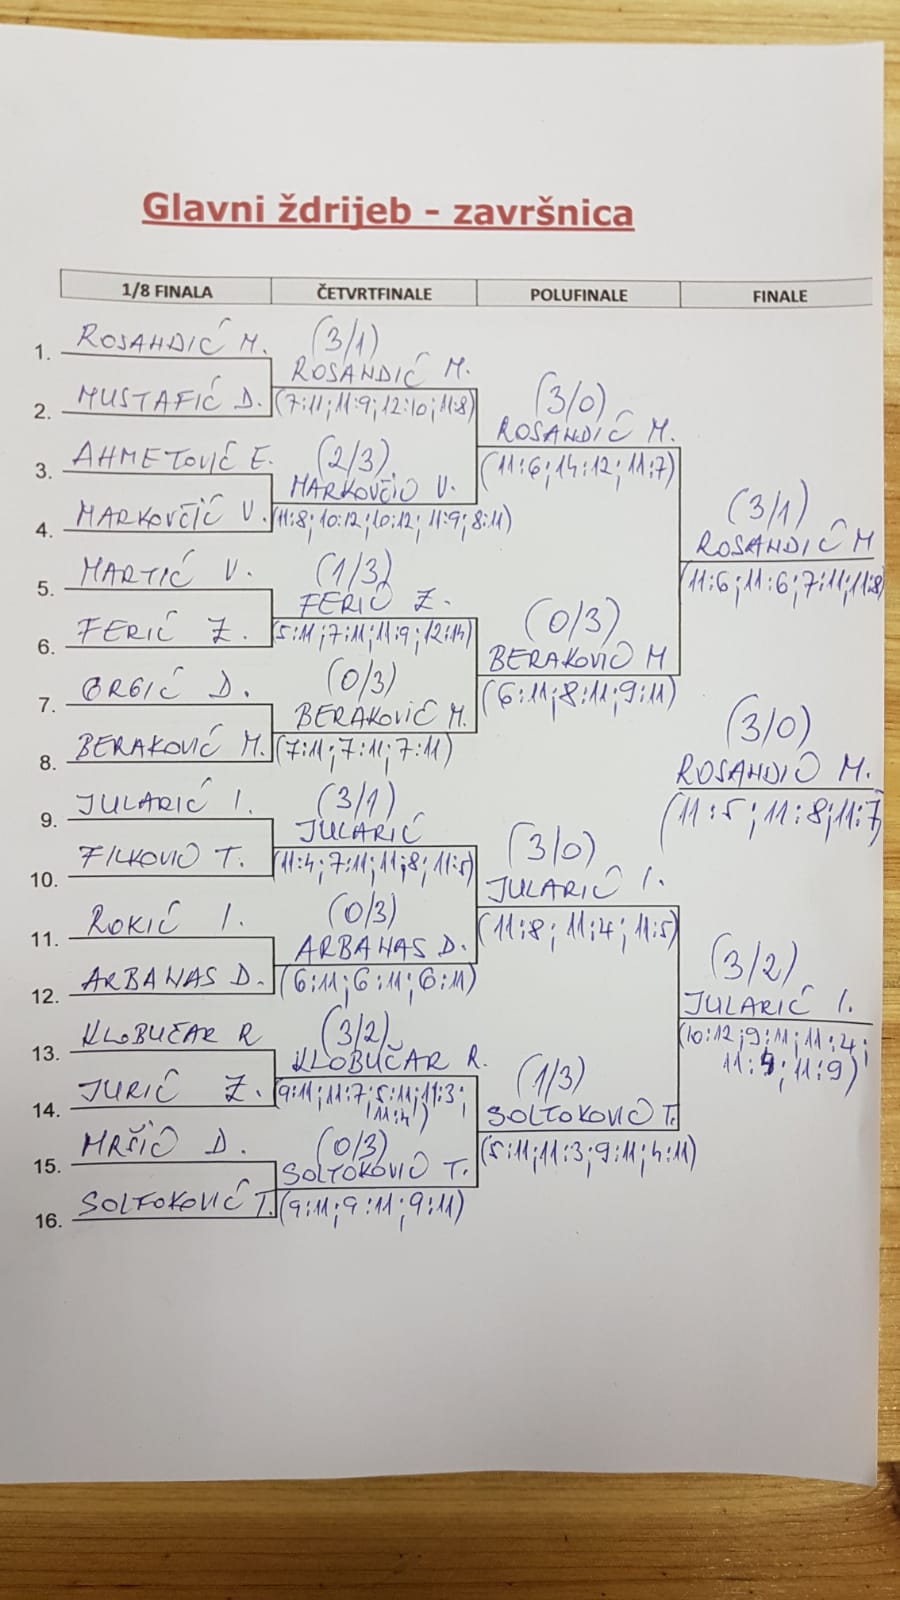 Glavni ždrijeb - završnica
1/8 FINALA ČETVRTFINALE POLUFINALE FINALE
1. ROSANDIĆ M.
2. MUSTAFIĆ D.
3. AHMETOVIĆ E.
4. MARKOVČIĆ V.
5. MARTIĆ V.
6. FERIĆ Z.
7. GRGIĆ D.
8. BERAKOVIĆ M.
9. JULARIĆ I.
10. FILKOVIĆ T.
11. ROKIĆ I.
12. ARBANAS D.
13. KLOBUČAR R
14. JURIĆ Z.
15. MRŠIĆ D.
16. SOLTOKOVIĆ T.
(3/1)
ROSANDIĆ M.
(7:11; 11:9; 12:10; 11:8)
(2/3)
MARKOVČIĆ V.
(11:8; 10:12; 10:12; 11:9; 8:11)
(1/3)
FERIĆ Z.
(5:11; 7:11; 11:9; 12:14)
(0/3)
BERAKOVIĆ M.
(7:11; 7:11; 7:11)
(3/1)
JULARIĆ
(11:4; 7:11; 11:8; 11:5)
(0/3)
ARBANAS D.
(6:11; 6:11; 6:11)
(3/2)
KLOBUČAR R.
(9:11; 11:7; 5:11; 11:3;
11:4)
(0/3)
SOLTOKOVIĆ T.
(9:11; 9:11; 9:11)
(3/0)
ROSANDIĆ M.
(11:6; 14:12; 11:7)
(0/3)
BERAKOVIĆ M
(6:11; 8:11; 9:11)
(3/0)
JULARIĆ I.
(11:8; 11:4; 11:5)
(1/3)
SOLTOKOVIĆ T.
(5:11; 11:3; 9:11; 4:11)
(3/1)
ROSANDIĆ M
(11:6; 11:6; 7:11; 11:8)
(3/0)
ROSANDIĆ M.
(11:5; 11:8; 11:7)
(3/2)
JULARIĆ I.
(10:12; 9:11; 11:4;
11:9; 11:9)